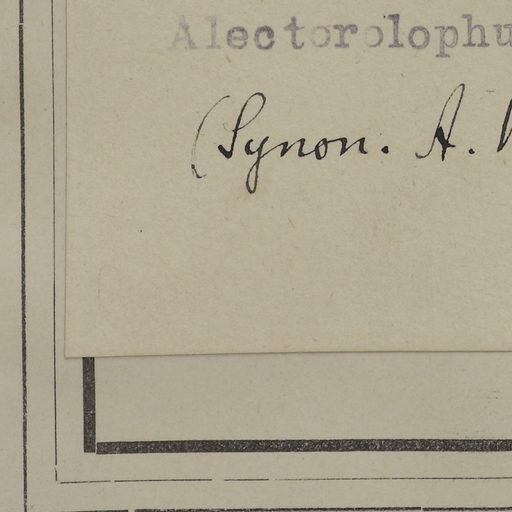 Alectorolophu
(Synon. A.